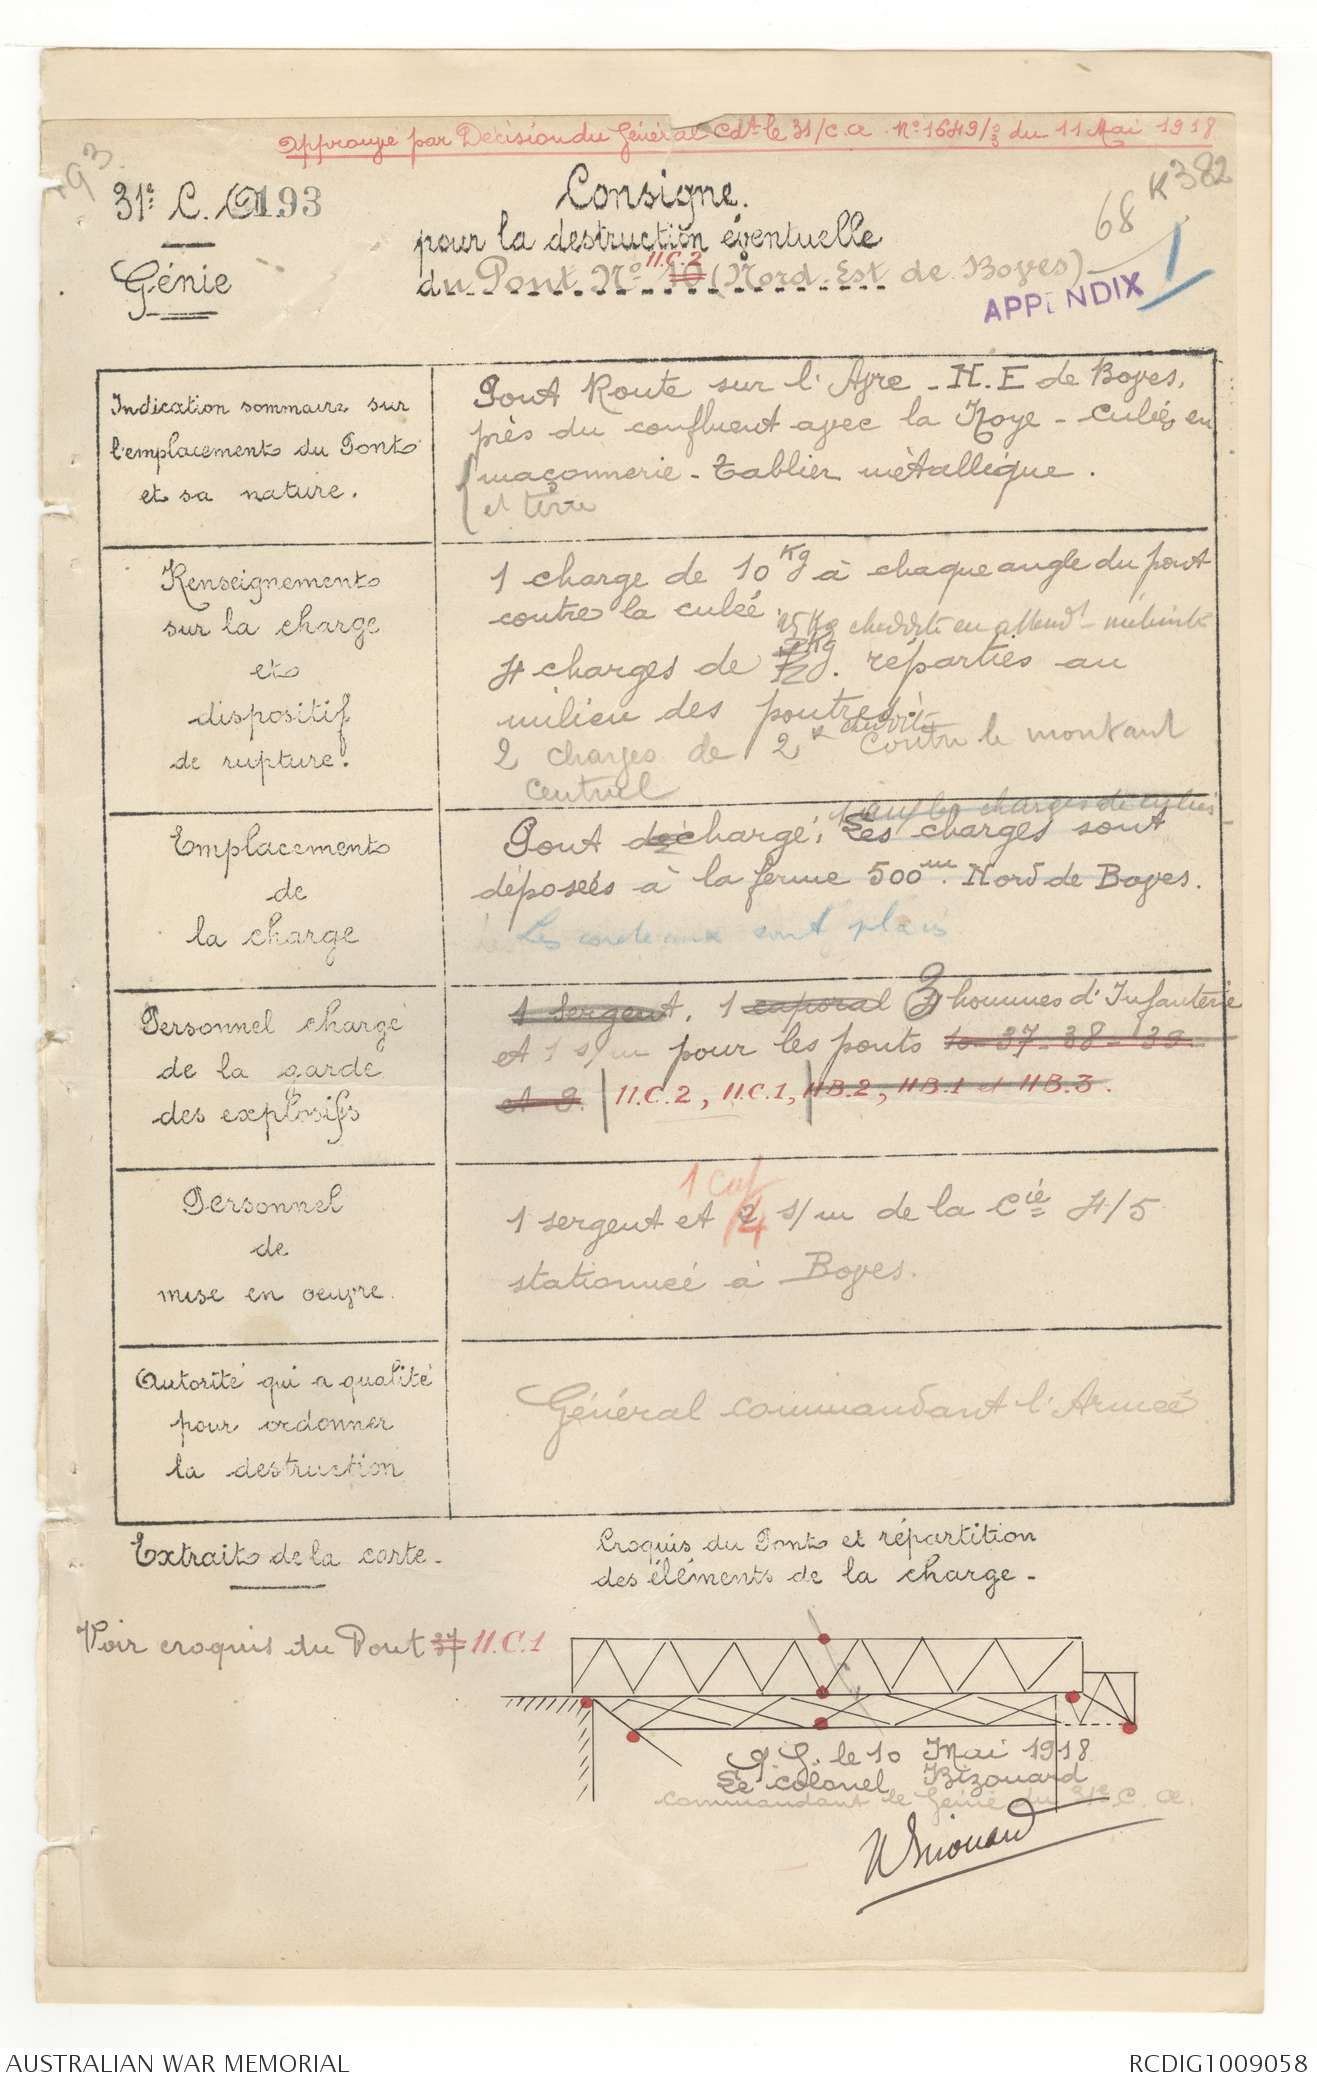 approuvé par Décision du Général Cdt le 31/C.A. No 1649/3 du 11 Mai 1918
93
31e C. A. 193
Génie
Consigne.
pour la destruction éventuelle
du Pont No 10 11.C.2 (Nord-Est de Boves)
68 K382
APPENDIX 1
Indication sommaire sur
l'emplacement du Pont
et sa nature.
Pont Route sur l'Avre - N.E de Boves,
près du confluent avec la Noye - culée en
maçonnerie - Tablier métallique.
et terre
Renseignements
sur la charge
et
dispositif
de rupture.
1 charge de 10 Kg à chaque angle du pont
contre la culée.
4 charges de Kg. réparties au
milieu des poutres.
2 charges de 2 K contre le montant
central
Emplacement
de
la charge
Pont dechargé; sauf les charges de culées
Les charges sont
déposées à la ferme 500m. Nord de Boves.
Les cordeaux sont placés
Personnel chargé
de la garde
des explosifs
1 Sergent, 1 caporal 3 hommes d'Infanterie
et 1 s/m pour les ponts 10-37-38-39
et 8. 11.C.2, 11.C.1, 11B.2, 11B.1 et 11B.3.
Personnel
de
mise en oeuvre.
1 Cap
1 sergent et 2 4 s/m de la Cie 4/5
stationnée à Boves.
Autorité qui a qualité
pour ordonner
la destruction
Général commandant l'Armée
Extrait de la carte.
Croquis du Pont et répartition
des éléments de la charge.
Voir croquis du Pont 37 11.C.1
Q.G. le 10 Mai 1918
Le colonel Bizouard
commandant le Génie du 31e C. A.
Bizouard
AUSTRALIAN WAR MEMORIAL
RCDIG1009058